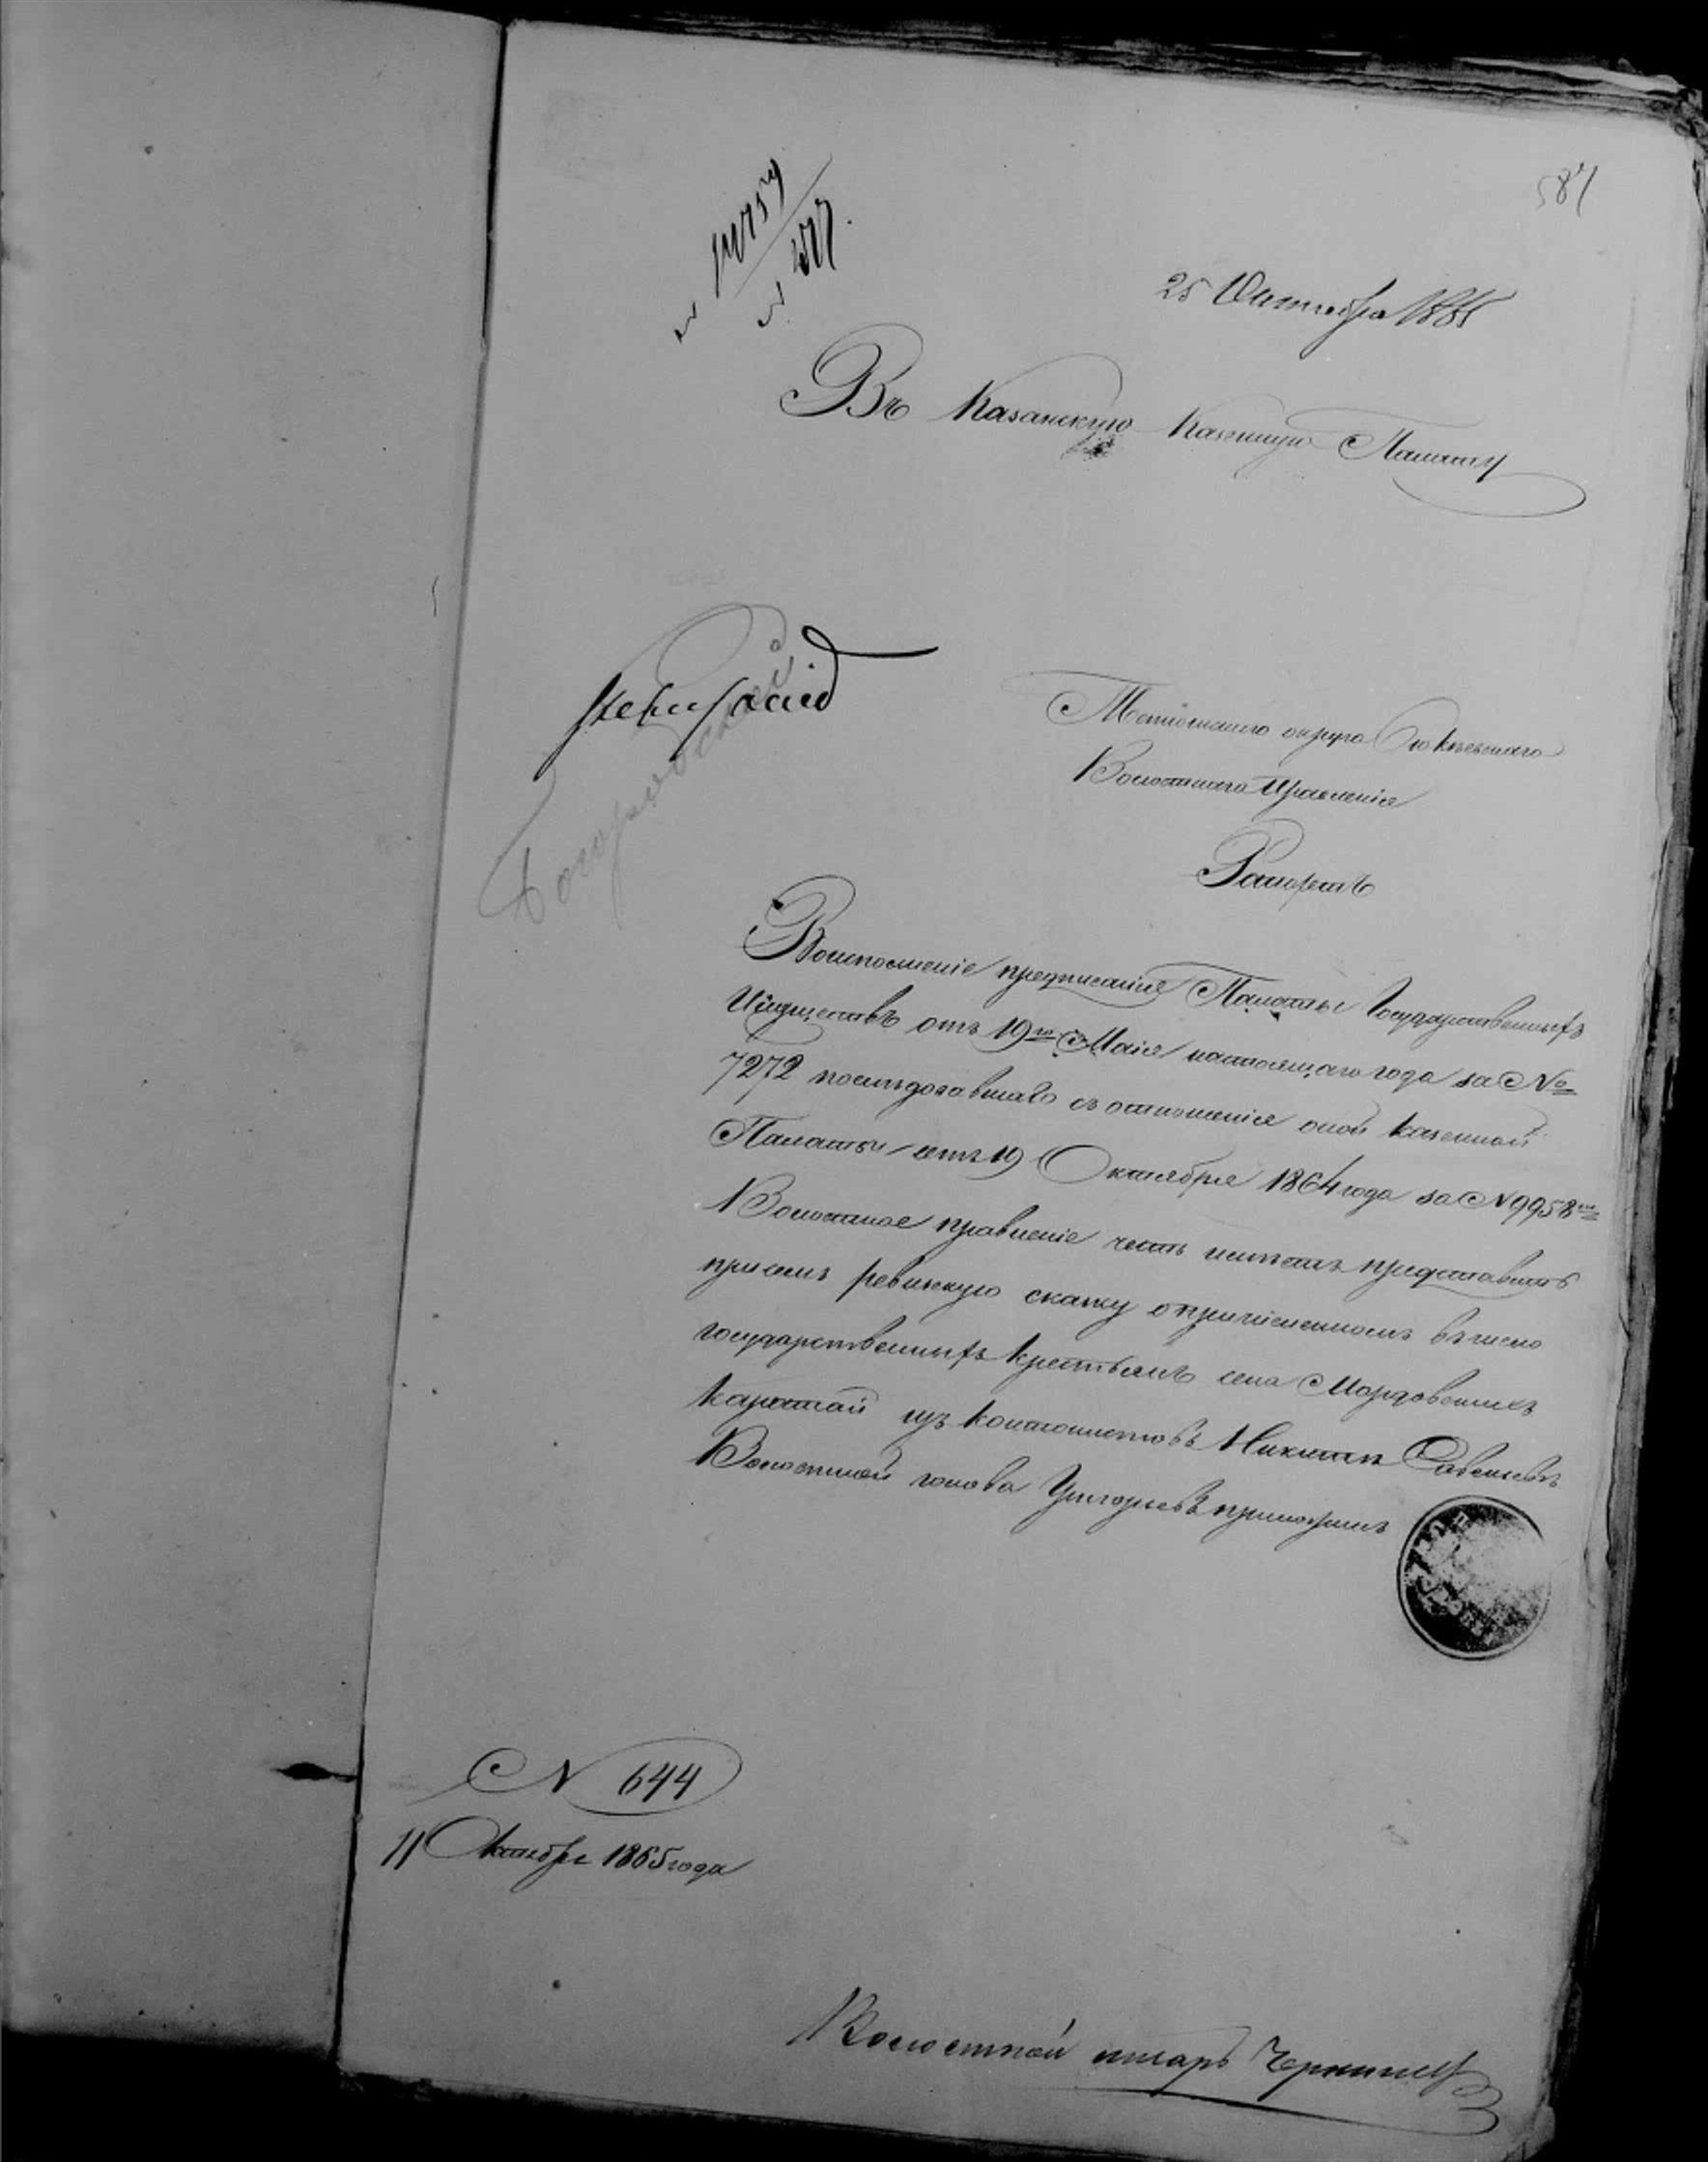 587
25 Октября 1865
Въ Казанскую Казенную Палату
Тетюшскаго округа Сюкѣевскаго
Волостнаго Правленія
Рапортъ
Восполненіе предписанія Палаты Государственныхъ
Имуществъ отъ 19го Маія настоящаго года за №
7272 послѣдовавшаго съ отношенія оной Казенной
Палаты отъ 19 Октября 1864 года за N 9958
Волостное правленіе честь имѣетъ представить
присемъ ревизкую скаску опричисленномъ вчисло
государственныхъ крестьянъ села Мордовскихъ
Каратай изъ кантонистовъ Никитѣ Савельевѣ
Волостной голова Григорьевъ
N 644
11 Октября 1865 года
Волостной писарь